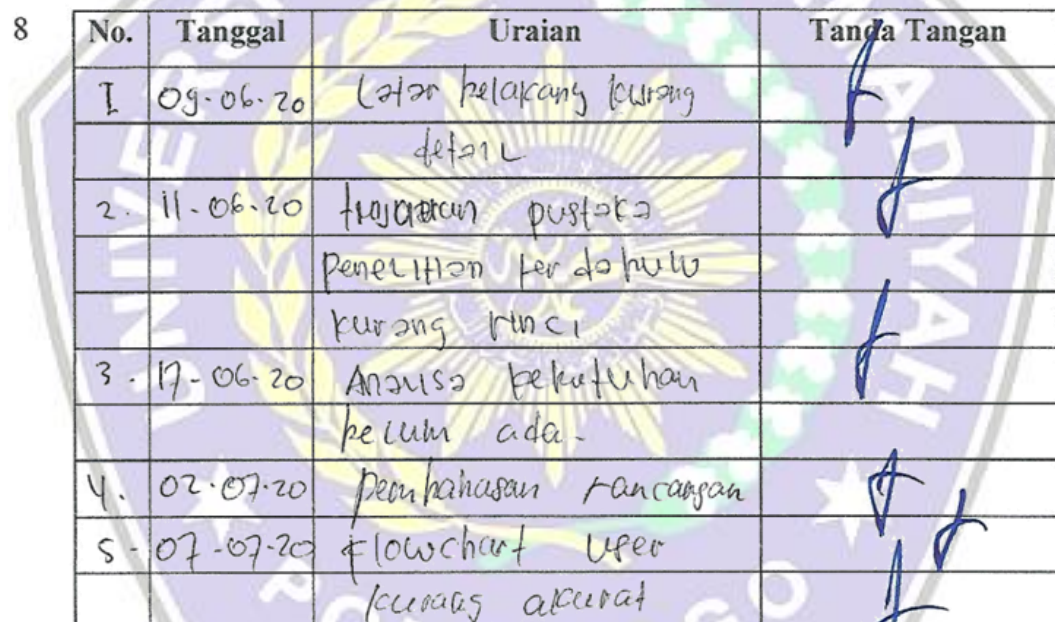 8
No. Tanggal Uraian Tanda Tangan
1 09-06-20 Latar belakang kurang
detail
2. 11-06-20 tinjauan pustaka
Penelitian terdahulu
kurang rinci
3. 17-06-20 Analisa kebutuhan
belum ada.
4. 02-07-20 Pembahasan rancangan
5. 07-07-20 flowchart user
kurang akurat